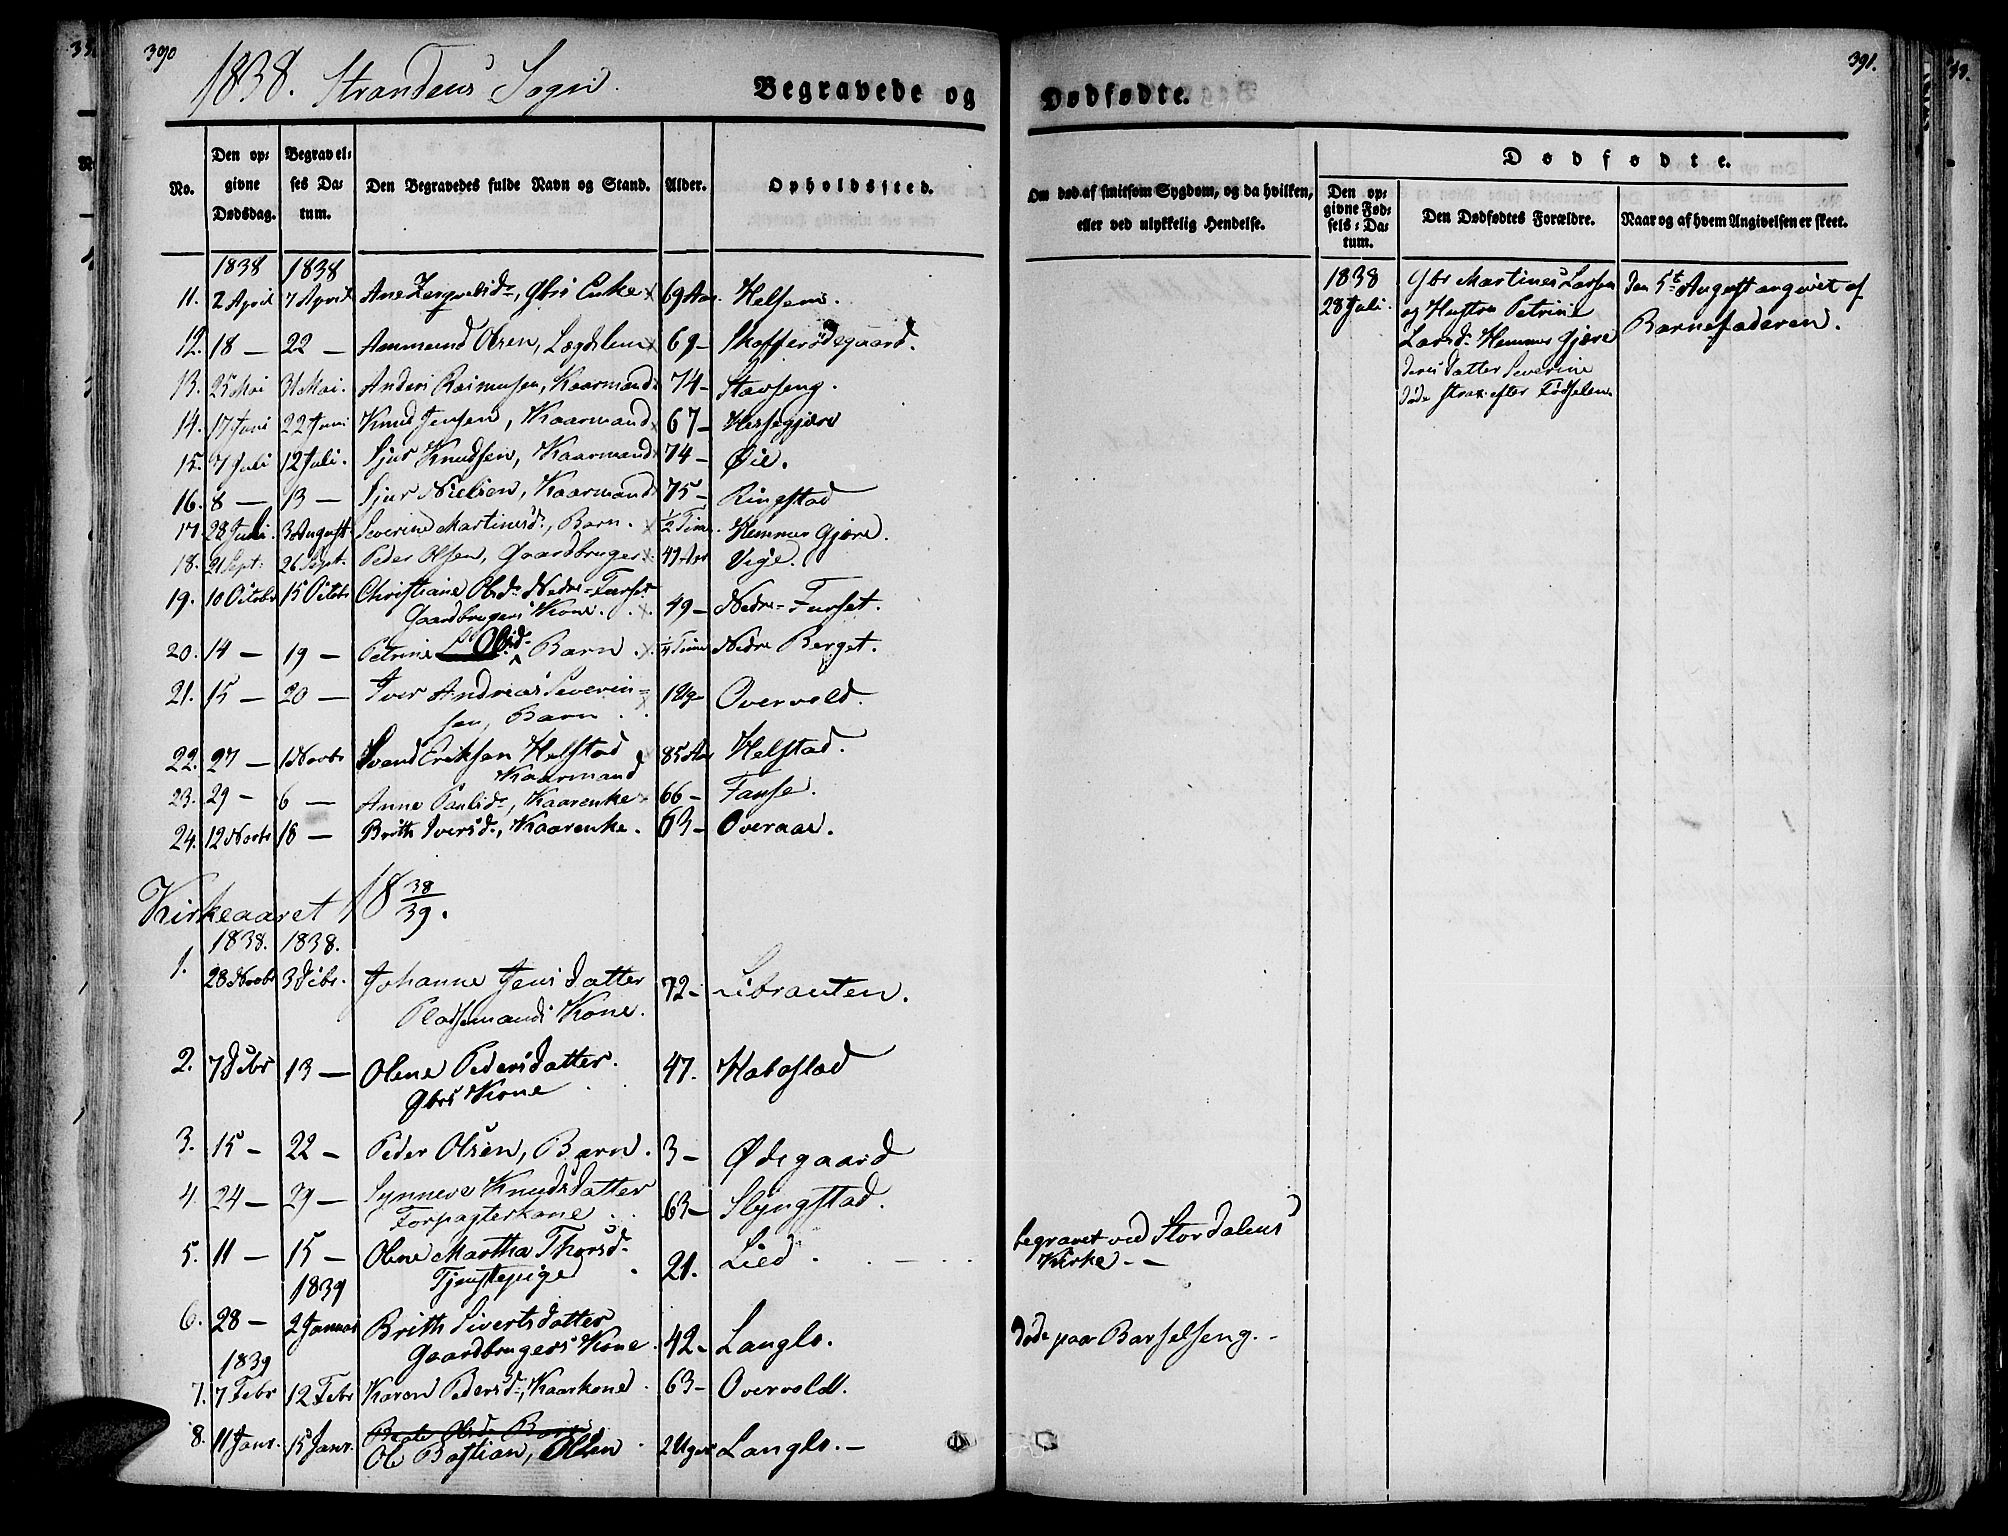 390
1838. Strandens Sogn.
Begravede og Dødfødte.
391.
No.
Den opgivne Dødsdag.
Begravelses Datum.
Den Begravedes fulde Navn og Stand.
Alder.
Opholdssted.
Om død af smitsom Sygdom, og da hvilken,
eller ved ulykkelig Hendelse.
Dødfødte.
Den opgivne Fødsels-Datum.
Den Dødfødtes Forældre.
Naar og af hvem Angivelsen er skeet.
1838 1838
11. 2 April 7 April Ane Gbrs Enke 69 Aar Helsem.
12. 18 — 22 — Ammund Olsen, Lægdslem 69 —
13. 25 Mai 31 Mai. Anders Rasmusen, Kaarmand 74 — Stavseng.
14. 17 Juni 22 Juni Knud Jensen, Kaarmand 67 — Hessegjære
15. 7 Juli 12 Juli. Sjur Knudsen, Kaarmand 74 — Øie.
16. 8 — 13 — Sjur Nielsen, Kaarmand 75 — Ringstad
17. 28 Juli. 3 August. Severine Martinusd., Barn. ½ Time. Hemmer Gjære.
18. 21 Sept. 26 Sept. Peder Olsen, Gaardbruger 47 Aar Vige.
19. 10 Octobr 15 Octobr Christiane Olsd. Nedre-Furset
Gaardbrugers Kone. 49 — Nedre-Furset.
20. 14 — 19 — Petrine Olsd. Barn. ¼ Time Nedre Berget.
21. 15 — 20 — Iver Andreas Severin-
sen, Barn. 1 Ug- Overvold.
22. 27 — 1 Novbr Svend Eriksen Helstad
Kaarmand 85 Aar Helstad.
23. 29 — 6 — Anne Paulsd., Kaarenke 66 — Fause.
24. 12 Novbr 18 — Brith Iversd., Kaarenke. 63 — Overaae.
Kirkeaaret 18 38/39.
1838. 1838.
1. 28 Novbr 3 Decbr. Johanne Jensdatter
Pladsemands Kone. 72 — Librauten.
2. 7 Decbr 13 — Olene Pedersdatter.
Gbrs Kone 47. Habostad
3. 15 — 22 — Peder Olsen, Barn. 3 — Ødegaard
4. 24 — 29 — Synneve Knudsdatter
Forpagterkone 63 — Slyngstad.
5. 11 — 15 — Olene Martha Thorsd.
Tjenstepige 21. Lied
1839
6. 28 — 2 Januar Brith Sivertsdatter
Gaardbrugers Kone 42 — Langlo.
1839
7. 7 Febr 12 Febr Karen Pedersd., Kaarkone 63 — Overvold.
8. 11 Janr. 15 Janr. Beate Olsd. Barn
Ole Bastian, Olsen 2 Uger Langlo. —
begravet ved Stordalens
Kirke — —
døde paa Barselseng. —
1838
28 Juli.
Gbr Martinus Larsen
og Hustru Petrine
Larsd. Hemmer Gjære
deres Datter Severine
døde strax efter Fødselen
den 5te August angivet af
Barnefaderen.